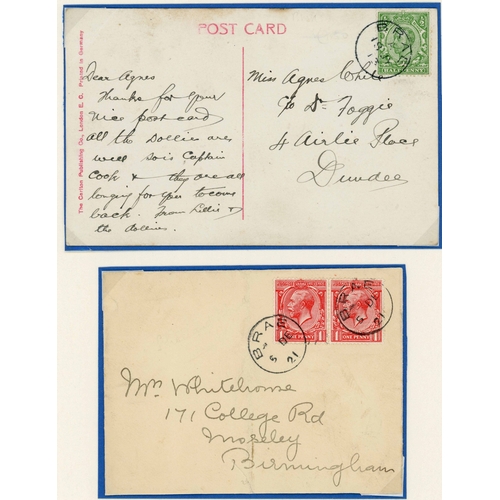 POST CARD
The Carlton Publishing Co., London E. C. Printed in Germany
Dear Agnes
Thanks for your
nice post card
all the dollies are
well so is Captain
Cook & they are all
longing for you to come
back. From Lillie &
the dollies.
Miss Agnes White
c/o Dr. Foggie
4 Airlie Place
Dundee
HALF PENNY
BRAE
BRAE
5 DE
21
BRAE
5 DE
21
ONE PENNY
Mrs Whitehouse
171 College Rd
Moseley
Birmingham